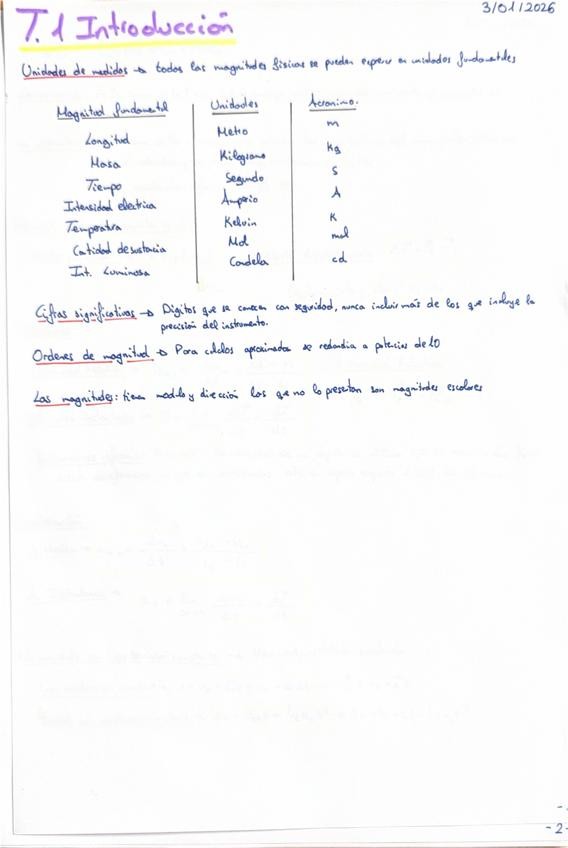 3/01/2026
T.1 Introducción
Unidades de medidas → todas las magnitudes físicas se pueden expresar en unidades fundamentales
Magnitud fundamental Unidades Acronimo.
Longitud Metro m
Masa Kilogramo Kg
Tiempo Segundo S
Intensidad electrica Amperio A
Temperatura Kelvin K
Cantidad de sustancia Mol mol
Int. Luminosa Candela cd
Cifras significativas → Digitos que se conocen con seguridad, nunca incluir más de los que incluye la
precisión del instrumento.
Ordenes de magnitud → Para calculos aproximados se redondia a potencias de 10
Las magnitudes: tienen modulo y dirección las que no lo presentan son magnitudes escalares
-2-